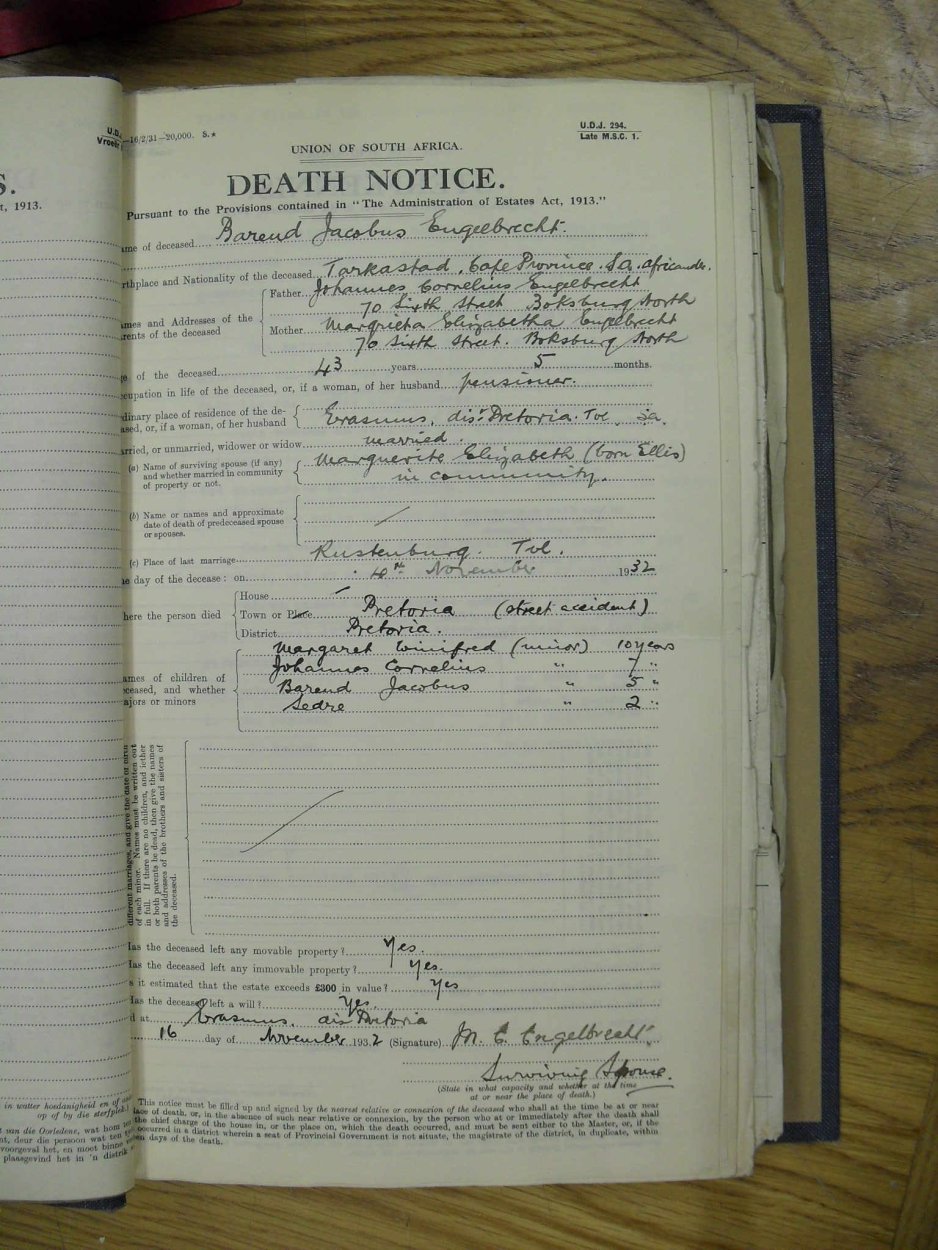 U.D.J.
Vroeër
—16/2/31—20,000. S.★
U.D.J. 294.
Late M.S.C. 1.
UNION OF SOUTH AFRICA.
S.
DEATH NOTICE.
t, 1913.
Pursuant to the Provisions contained in "The Administration of Estates Act, 1913."
ame of deceased Barend Jacobus Engelbrecht.
rthplace and Nationality of the deceased Tarkastad, Cape Province. S.a. africander.
ames and Addresses of the
rents of the deceased
Father Johannes Cornelius Engelbrecht
70 Sixth Street Boksburg North
Mother Margrieta Elizabetha Engelbrecht
70 Sixth Street. Boksburg North
e of the deceased 43 years 5 months.
cupation in life of the deceased, or, if a woman, of her husband pensioner.
dinary place of residence of the de-
ased, or, if a woman, of her husband
Erasmus, dist Pretoria. Tvl S.a.
arried, or unmarried, widower or widow married.
(a) Name of surviving spouse (if any)
and whether married in community
of property or not.
Marguerite Elizabeth (born Ellis)
in community.
(b) Name or names and approximate
date of death of predeceased spouse
or spouses.
(c) Place of last marriage Rustenburg. Tvl.
e day of the decease: on 4th November 1932
here the person died
House
Town or Place Pretoria (street accident)
District Pretoria.
ames of children of
eceased, and whether
ajors or minors
Margaret Winifred (minor) 10 years
Johannes Cornelius " 7 "
Barend Jacobus " 5 "
Sedre " 2 "
different marriages, and give the date of birth
of each minor. Names must be written out
in full. If there are no children, and either
or both parents be dead, then give the names
and addresses of the brothers and sisters of
the deceased.
Has the deceased left any movable property? Yes.
Has the deceased left any immovable property? Yes.
s it estimated that the estate exceeds £300 in value? Yes
Has the deceased left a will? Yes.
d at Erasmus, dis Pretoria
16 day of November 1932 (Signature) M. E. Engelbrecht.
Surviving Spouse.
(State in what capacity and whether at the time
at or near the place of death.)
This notice must be filled up and signed by the nearest relative or connexion of the deceased who shall at the time be at or near
lace of death, or, in the absence of such near relative or connexion, by the person who at or immediately after the death shall
the chief charge of the house in, or the place on, which the death occurred, and must be sent either to the Master, or, if the
occurred in a district wherein a seat of Provincial Government is not situate, the magistrate of the district, in duplicate, within
en days of the death.
in watter hoedanigheid en of
op of by die sterfplek
van die Oorledene, wat hom
nt, deur die persoon wat ten
voorgeval het, en moet binne
plaasgevind het in 'n distrik